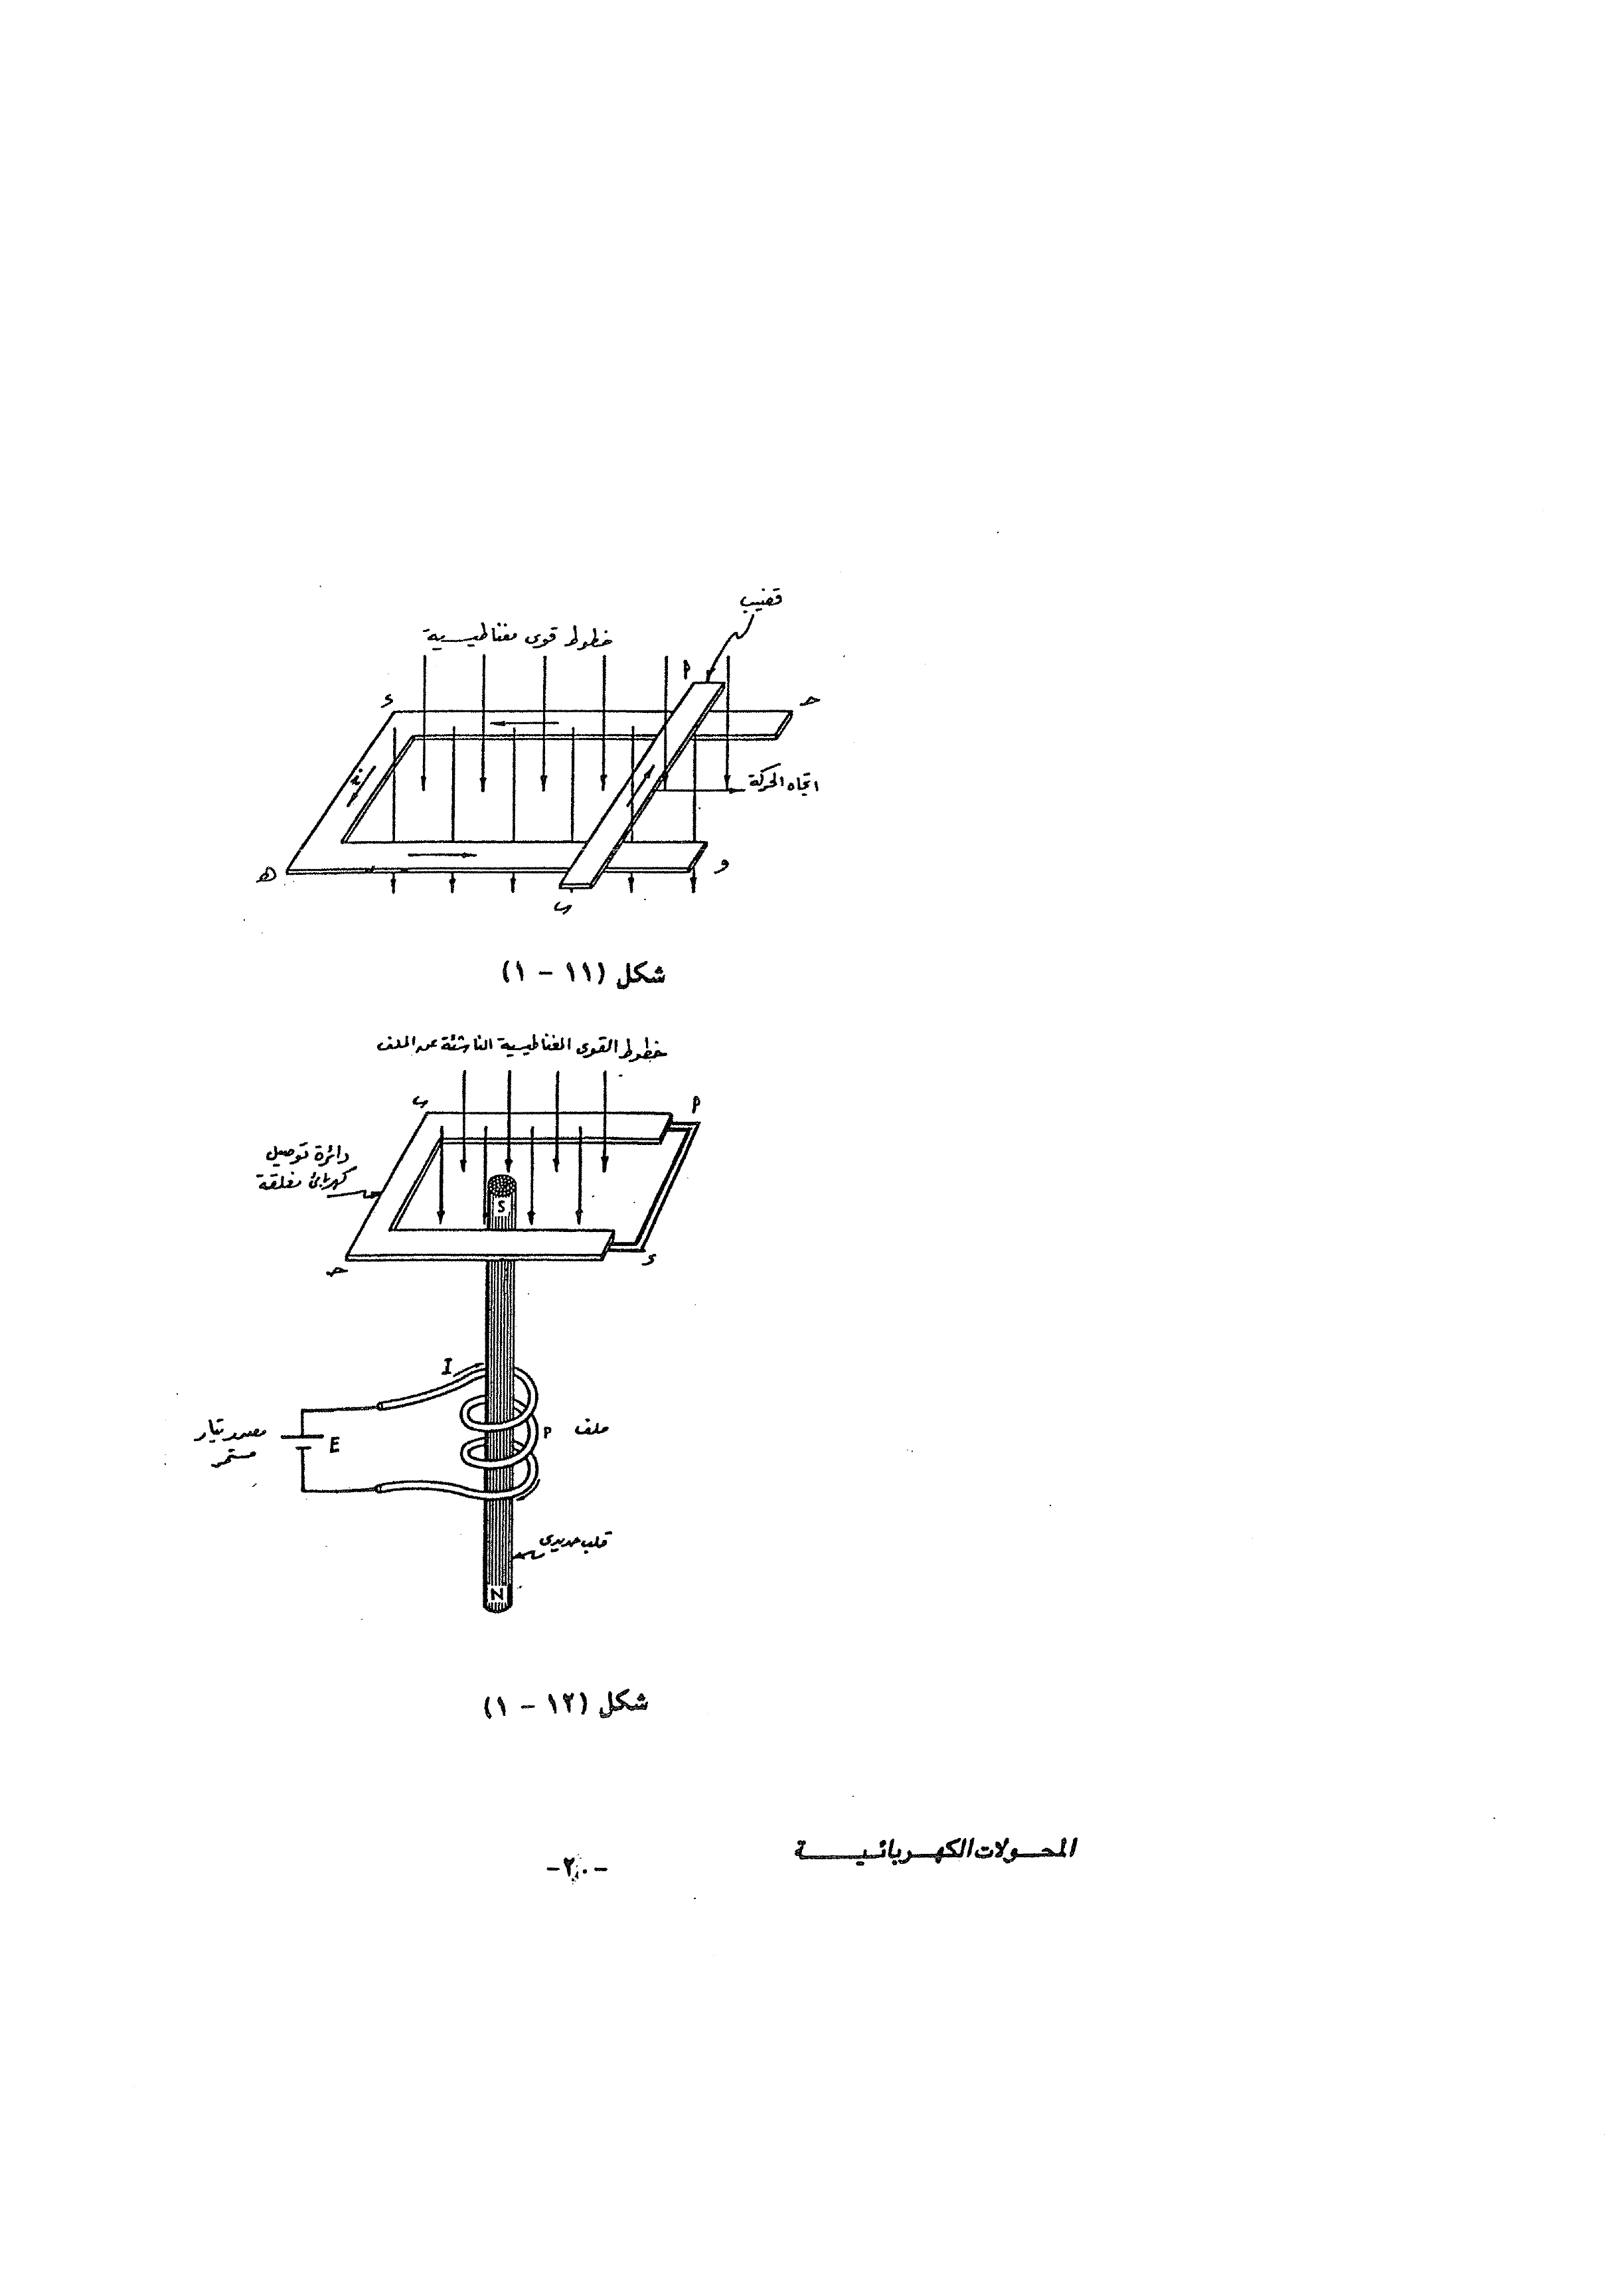 قضيب
خطوط قوى مغناطيسية
م
د
حـ
ت
اتجاه الحركة
هـ
و
ب
شكل (١١ - ١)
خطوط القوى المغناطيسية الناشئة عن الملف
ب
م
دائرة توصيل
كهربائى مغلقة
S
حـ
د
I
مصدر تيار
مستمر
E
م
ملف
قلب حديدى
N
شكل (١٢ - ١)
المحولات الكهربائية
-٢٠-